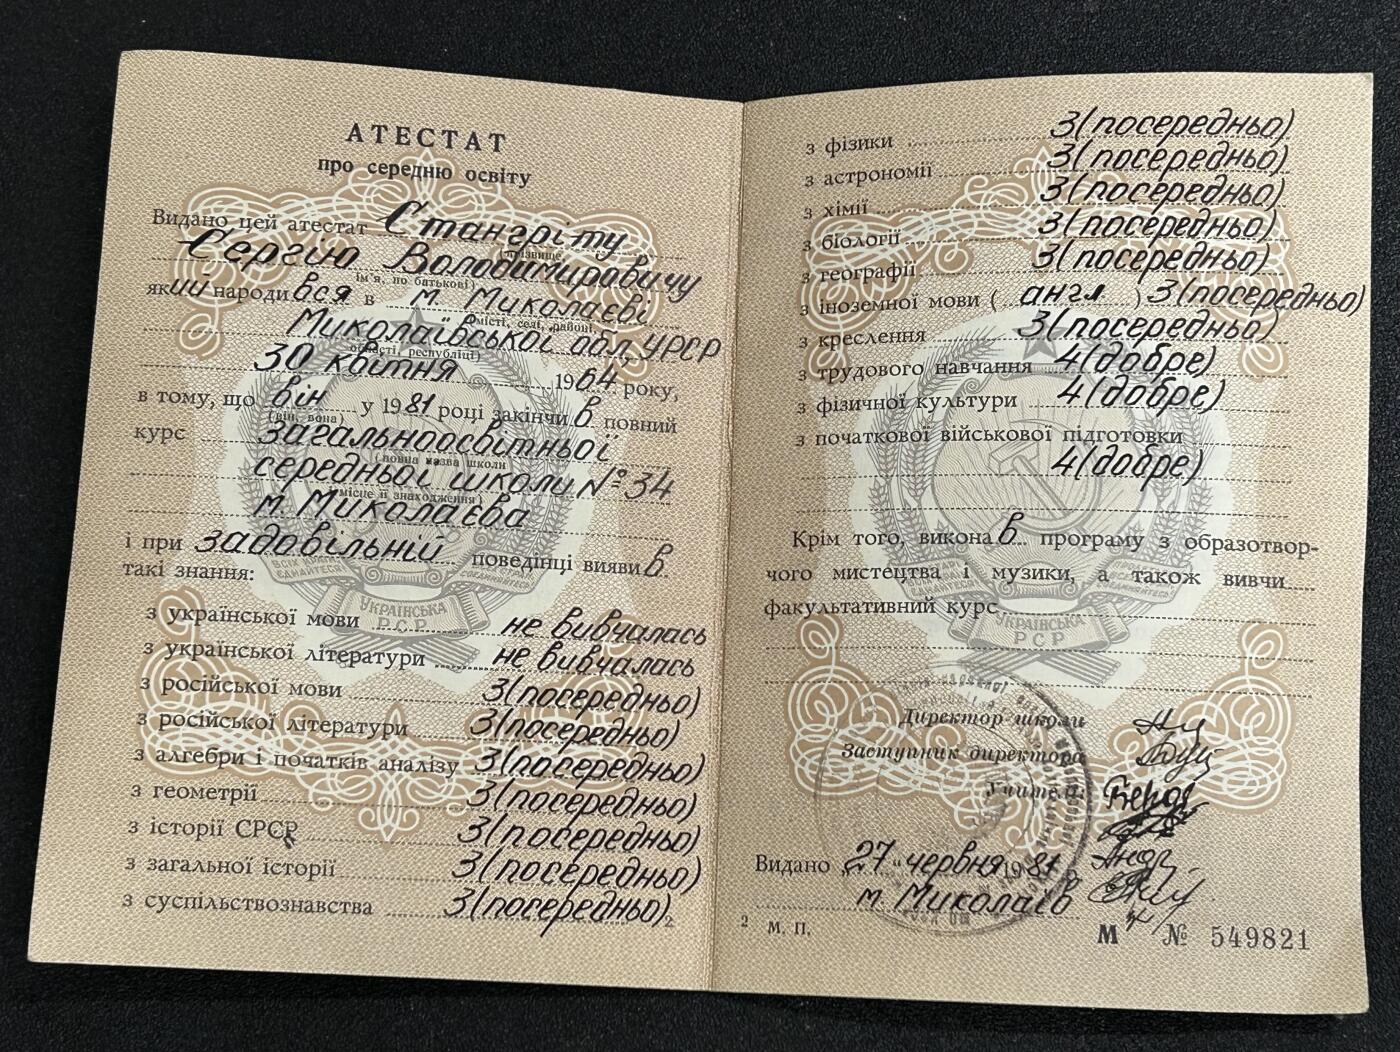 АТЕСТАТ
про середню освіту
Видано цей атестат Стангріту
(прізвище,
Сергію Володимировичу
ім'я, по батькові)
який народився в м. Миколаєві
(місті, селі, районі,
Миколаївської обл, УРСР
області, республіці)
30 квітня 1964 року,
в тому, що він у 1981 році закінчив повний
(він, вона)
курс загальноосвітньої
(повна назва школи
середньої школи № 34
і місце її знаходження)
м. Миколаєва
і при задовільній поведінці виявив
такі знання:
з української мови не вивчалась
з української літератури не вивчалась
з російської мови 3(посередньо)
з російської літератури 3(посередньо)
з алгебри і початків аналізу 3(посередньо)
з геометрії 3(посередньо)
з історії СРСР 3(посередньо)
з загальної історії 3(посередньо)
з суспільствознавства 3(посередньо)
2
УКРАЇНСЬКА
РСР
з фізики 3(посередньо)
з астрономії 3(посередньо)
з хімії 3(посередньо)
з біології 3(посередньо)
з географії 3(посередньо)
з іноземної мови ( англ ) 3(посередньо)
з креслення 3(посередньо)
з трудового навчання 4(добре)
з фізичної культури 4(добре)
з початкової військової підготовки
4(добре)
Крім того, викона в програму з образотвор-
чого мистецтва і музики, а також вивчи
факультативний курс
УКРАЇНСЬКА
РСР
Директор школи
Заступник директора
Учителі:
Видано „27" червня 1981 р.
м. Миколаїв
2 М. П.
М № 549821